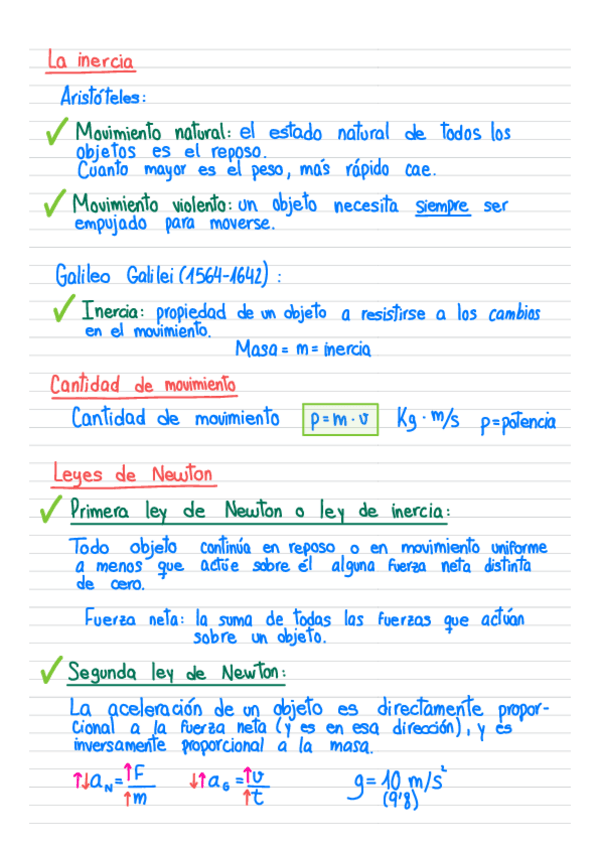 La inercia
Aristóteles:
✓ Movimiento natural: el estado natural de todos los
objetos es el reposo.
Cuanto mayor es el peso, más rápido cae.
✓ Movimiento violento: un objeto necesita siempre ser
empujado para moverse.
Galileo Galilei (1564-1642) :
✓ Inercia: propiedad de un objeto a resistirse a los cambios
en el movimiento.
Masa = m = inercia
Cantidad de movimiento
Cantidad de movimiento p = m · v Kg · m/s p = potencia
Leyes de Newton
✓ Primera ley de Newton o ley de inercia:
Todo objeto continúa en reposo o en movimiento uniforme
a menos que actúe sobre él alguna fuerza neta distinta
de cero.
Fuerza neta: la suma de todas las fuerzas que actúan
sobre un objeto.
✓ Segunda ley de Newton:
La aceleración de un objeto es directamente propor-
cional a la fuerza neta (y es en esa dirección), y es
inversamente proporcional a la masa.
↑↓a_N = ↑F / ↑m ↓↑a_G = ↑v / ↑t g = 10 m/s²
(9'8)